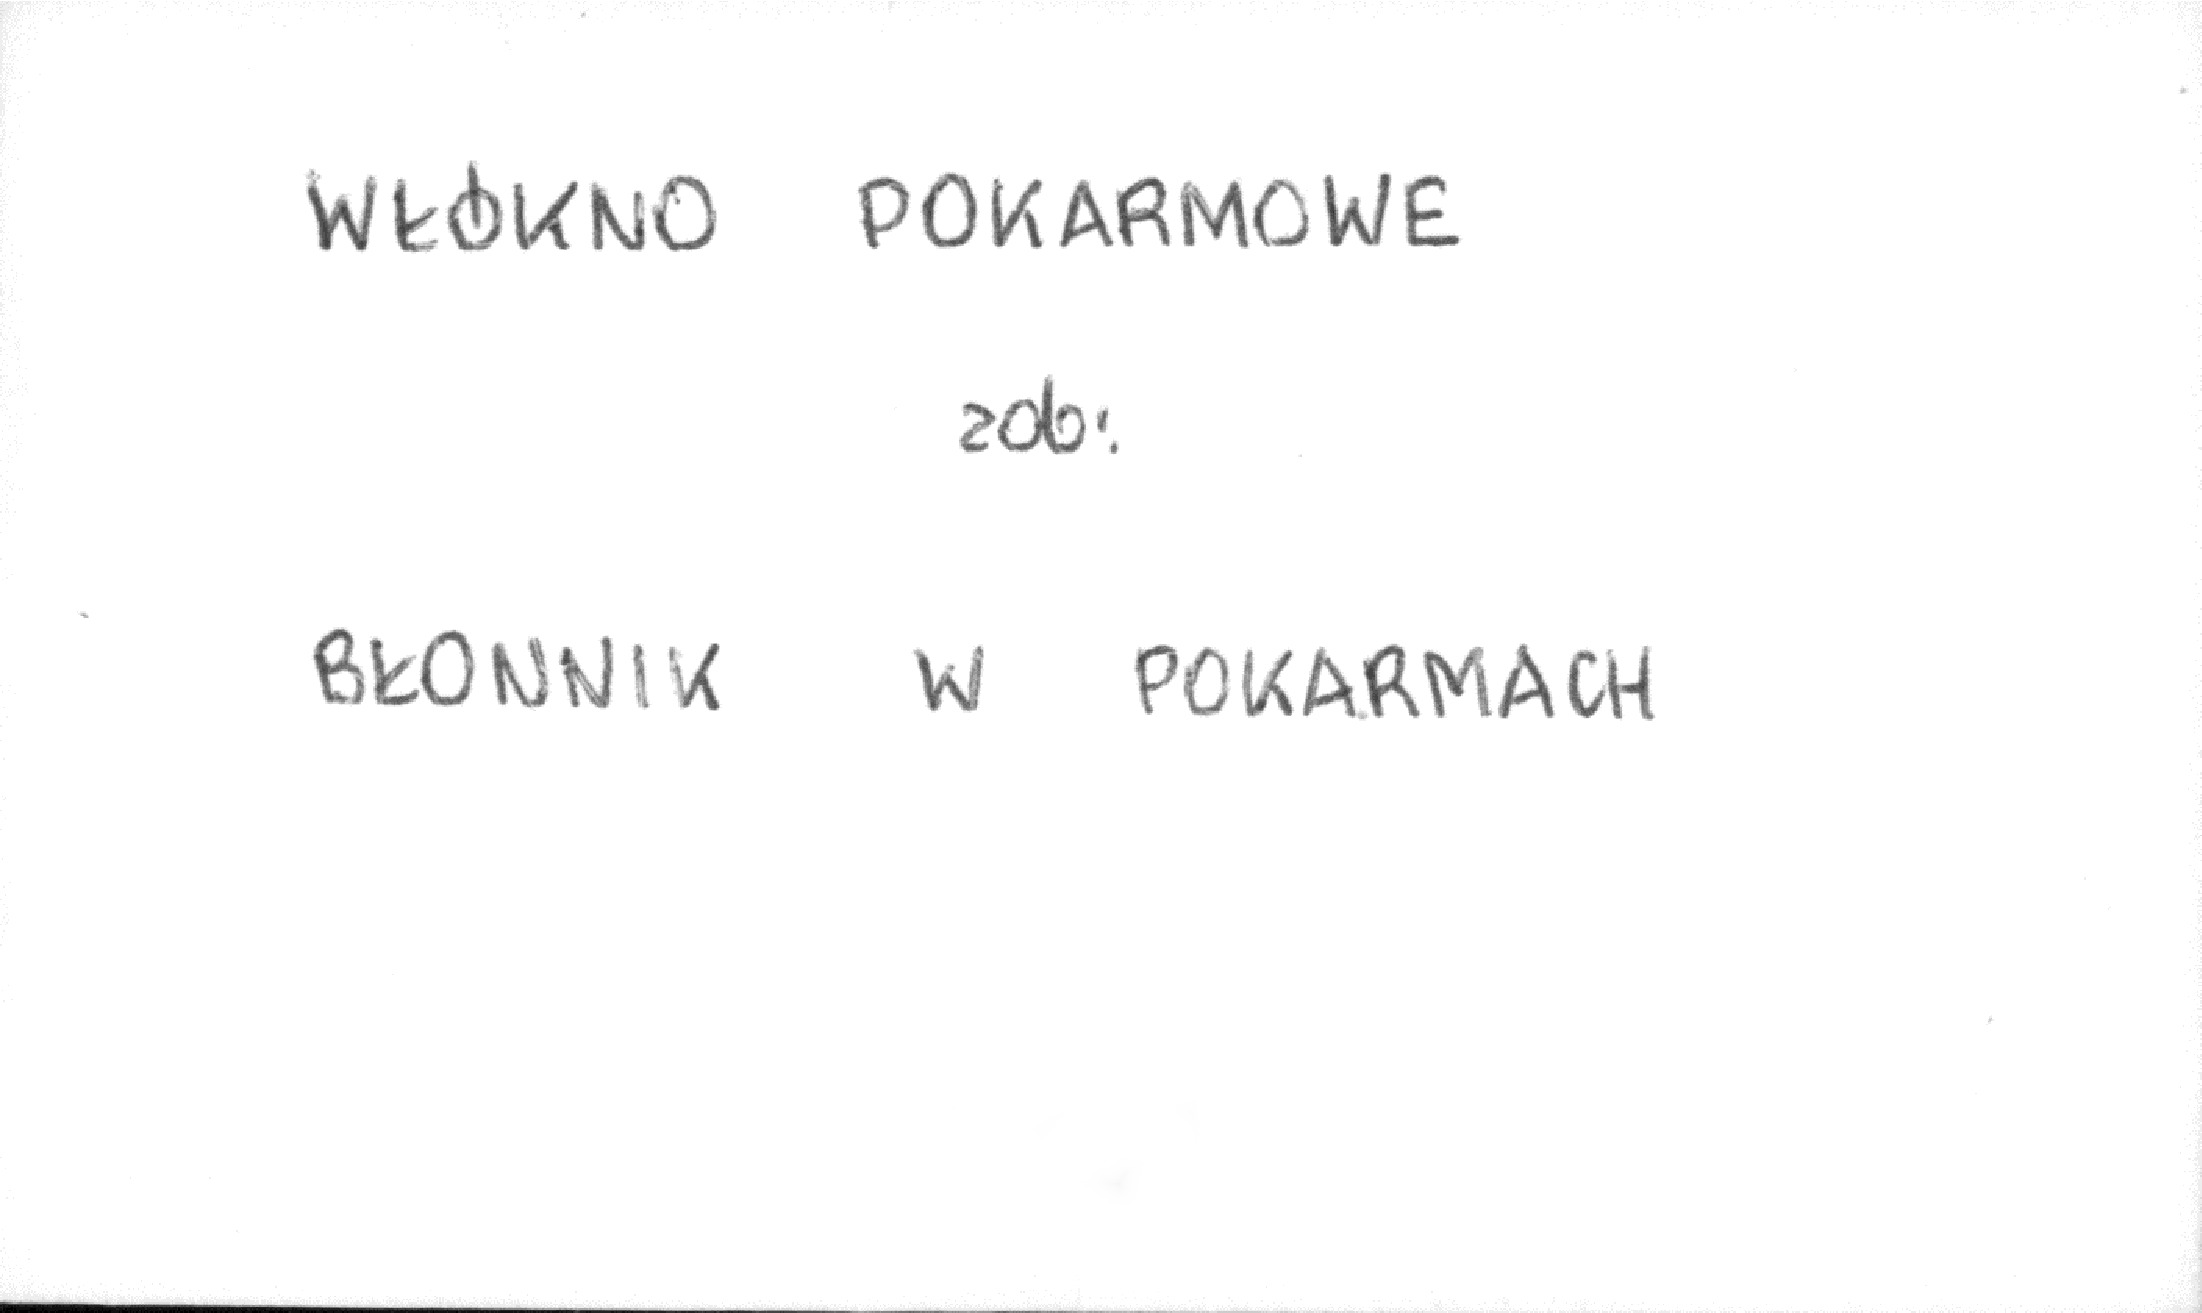 WŁÓKNO POKARMOWE
zob:
BŁONNIK W POKARMACH